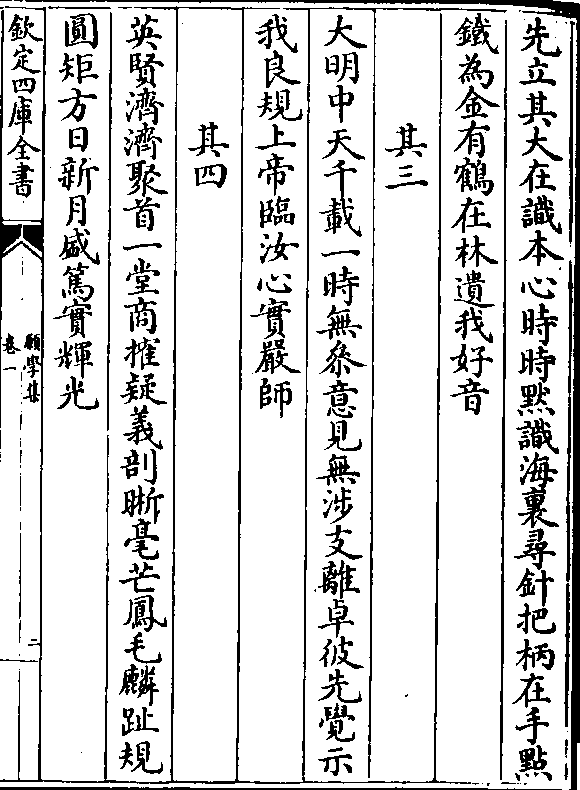 先立其大在識本心時時默識海裏尋針把柄在手點
鐵為金有鶴在林遺我好音
其三
大明中天千載一時無叅意見無涉支離卓彼先覺示
我良規上帝臨汝心實嚴師
其四
英賢濟濟聚首一堂商搉疑義剖晰毫芒鳳毛麟趾規
圓矩方日新月盛篤實輝光
欽定四庫全書
願學集
卷一
二